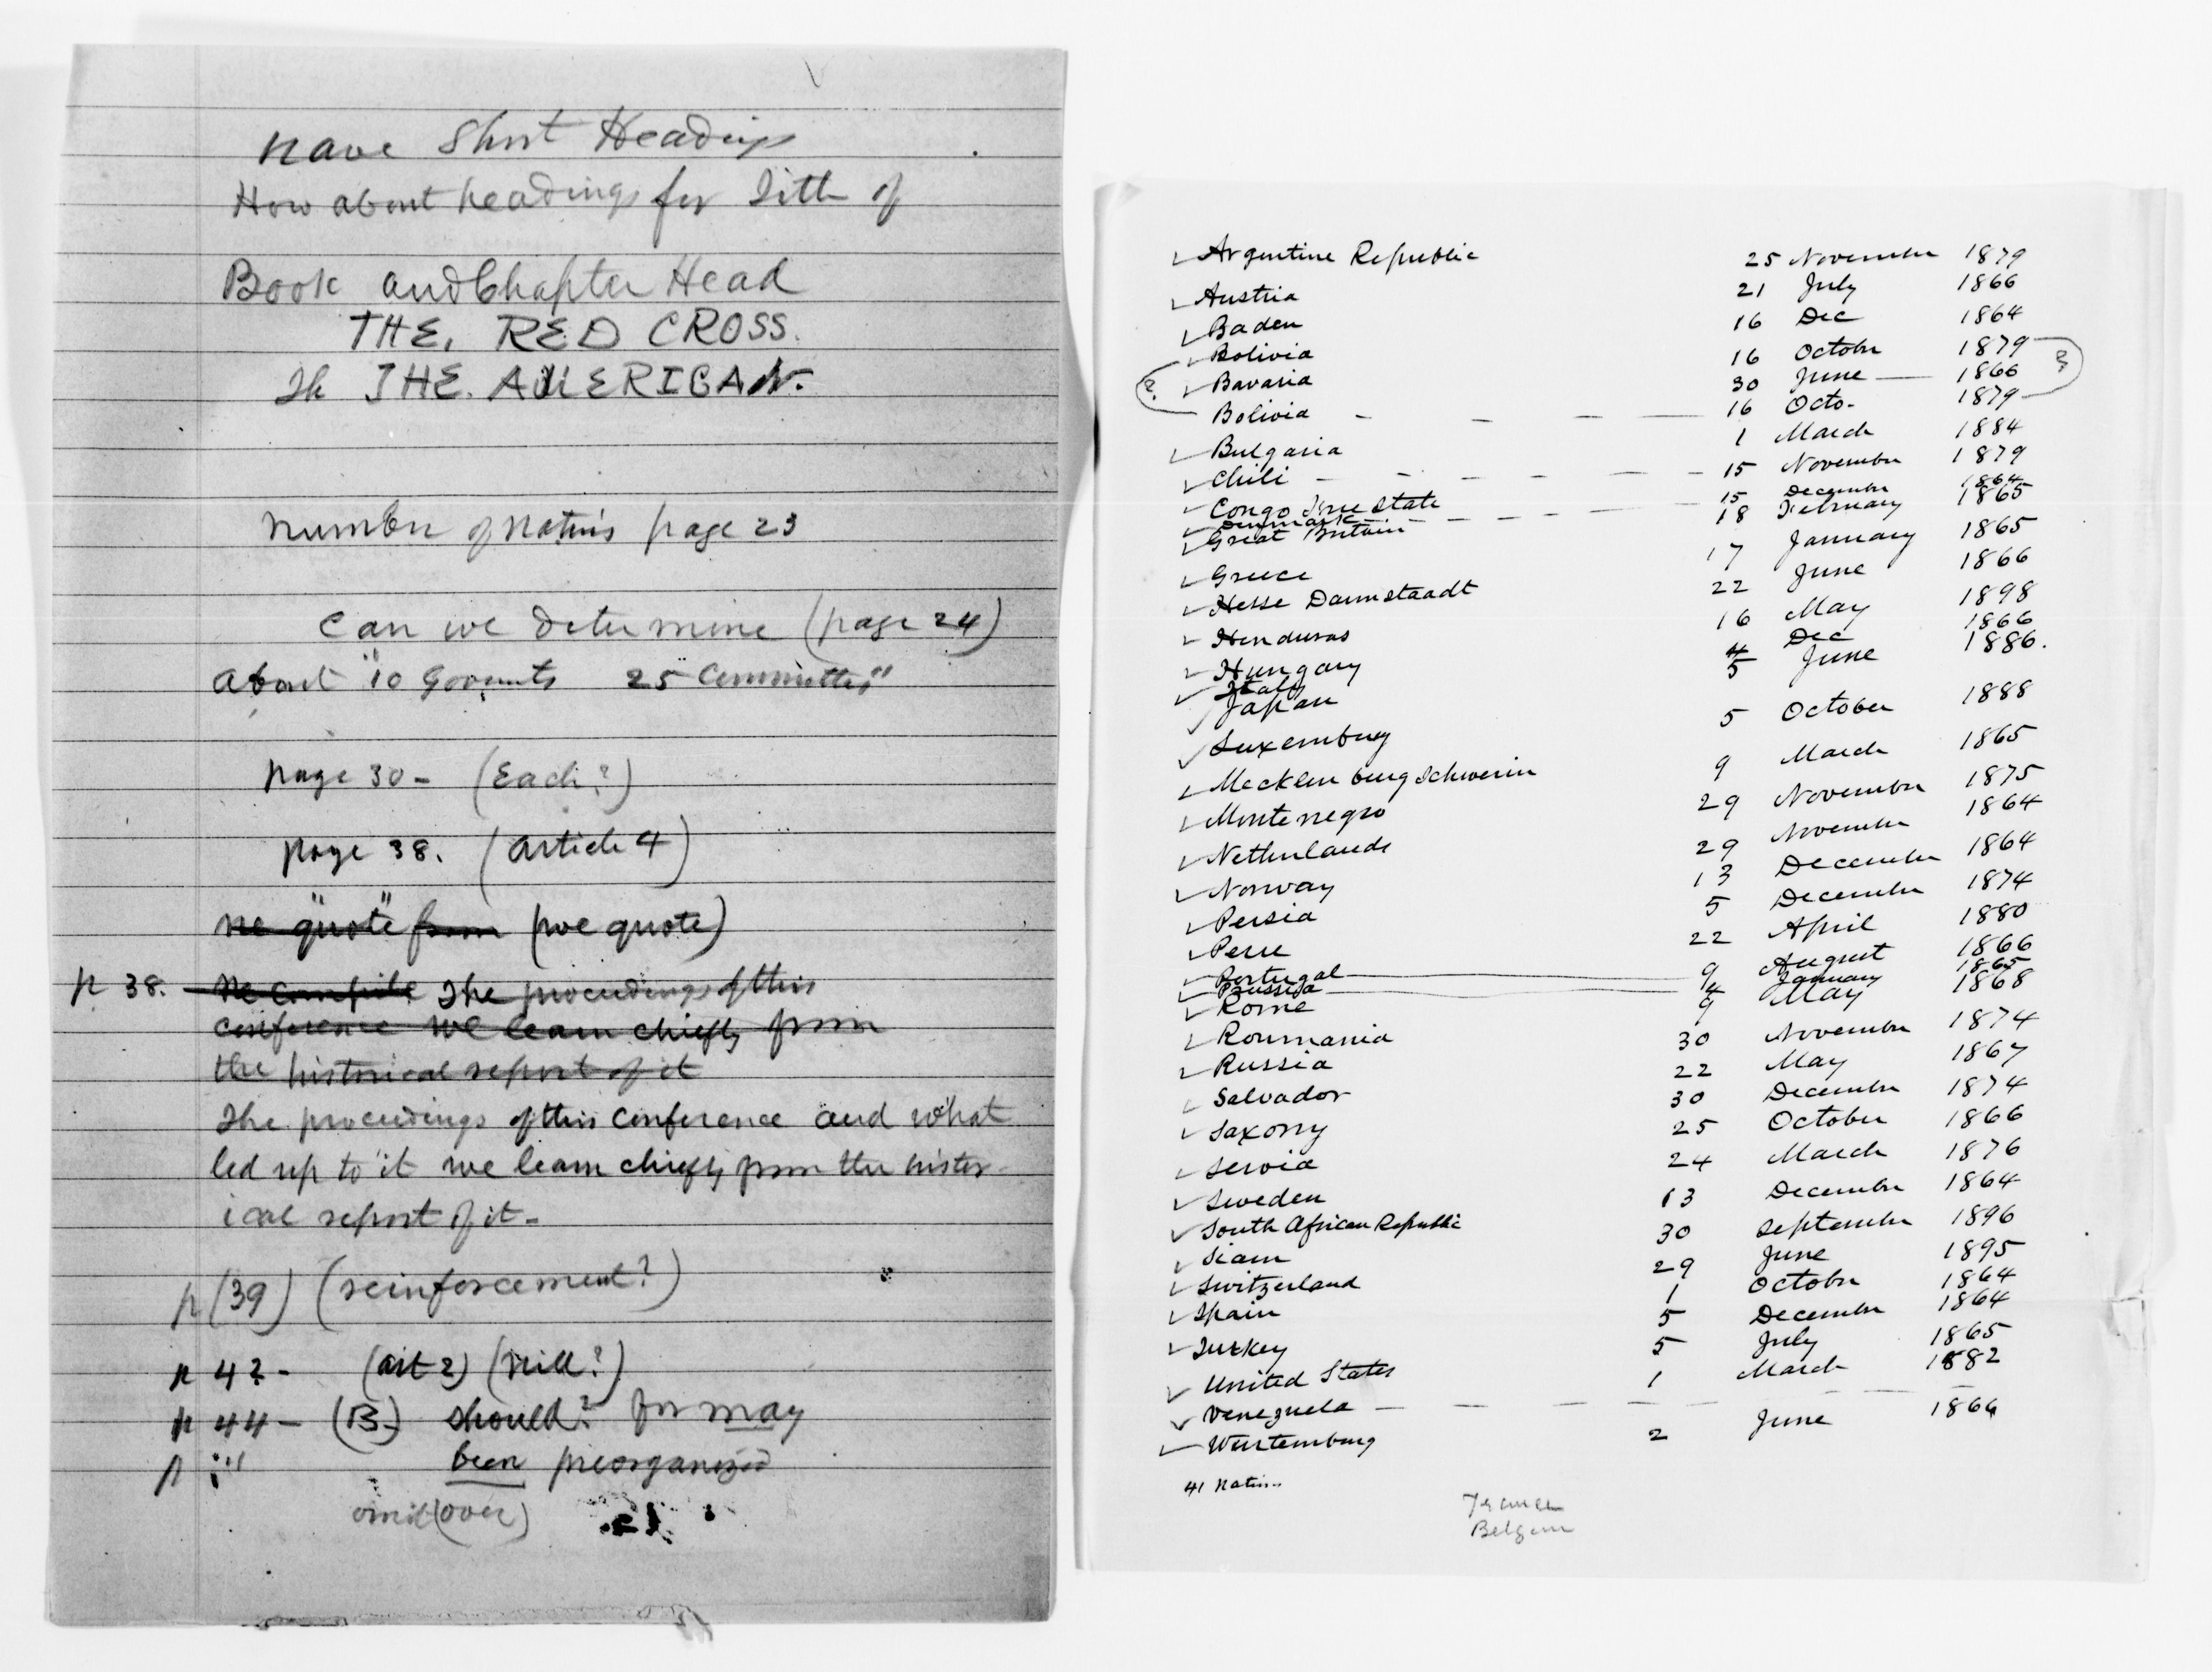 have Short Headings
How about headings for Title of
Book and Chapter Head
THE. RED CROSS.
Th THE. AMERICAN.
Number of Nations page 23
Can we determine (page 24)
About "10 Governts 25 Committes"
page 30 - (Each?)
page 38. (article 4)
we "quote" from (we quote)
p 38. We compile The proceedings of this
conference we learn chiefly from
the historical report of it
The proceedings of this conference and what
led up to it we learn chiefly from the histor-
ical report of it -
p (39) (reinforcement?)
p 42 - (art 2) (will?)
p 44 - (B) should? for may
p " been preorganized
omit (over)
Argentine Republic 25 November 1879
Austria 21 July 1866
Baden 16 Dec 1864
Bolivia 16 October 1879
? Bavaria 30 June — 1866 ?
Bolivia - - - 16 Octo. 1879
Bulgaria 1 March 1884
Chili - - - 15 November 1879
Congo Free State
Denmark - - - 15 December 1864
Great Britain 18 February 1865
Greece 17 January 1865
Hesse Darmstaadt 22 June 1866
Honduras 16 May 1898
Hungary
Italy 4 Dec 1866
Japan 5 June 1886.
Luxemburg 5 October 1888
Mecklenburg Schwerin 9 March 1865
Montenegro 29 November 1875
Netherlands 29 November 1864
Norway 13 December 1864
Persia 5 December 1874
Peru 22 April 1880
Portugal 9 August 1866
Prussia 4 January 1865
Rome 9 May 1868
Roumania 30 November 1874
Russia 22 May 1867
Salvador 30 December 1874
Saxony 25 October 1866
Servia 24 March 1876
Sweden 13 December 1864
South African Republic 30 September 1896
Siam 29 June 1895
Switzerland 1 October 1864
Spain 5 December 1864
Turkey 5 July 1865
United States 1 March 1882
Venezuela - - - - -
Wurtemburg 2 June 1866
41 Nations
France
Belgium